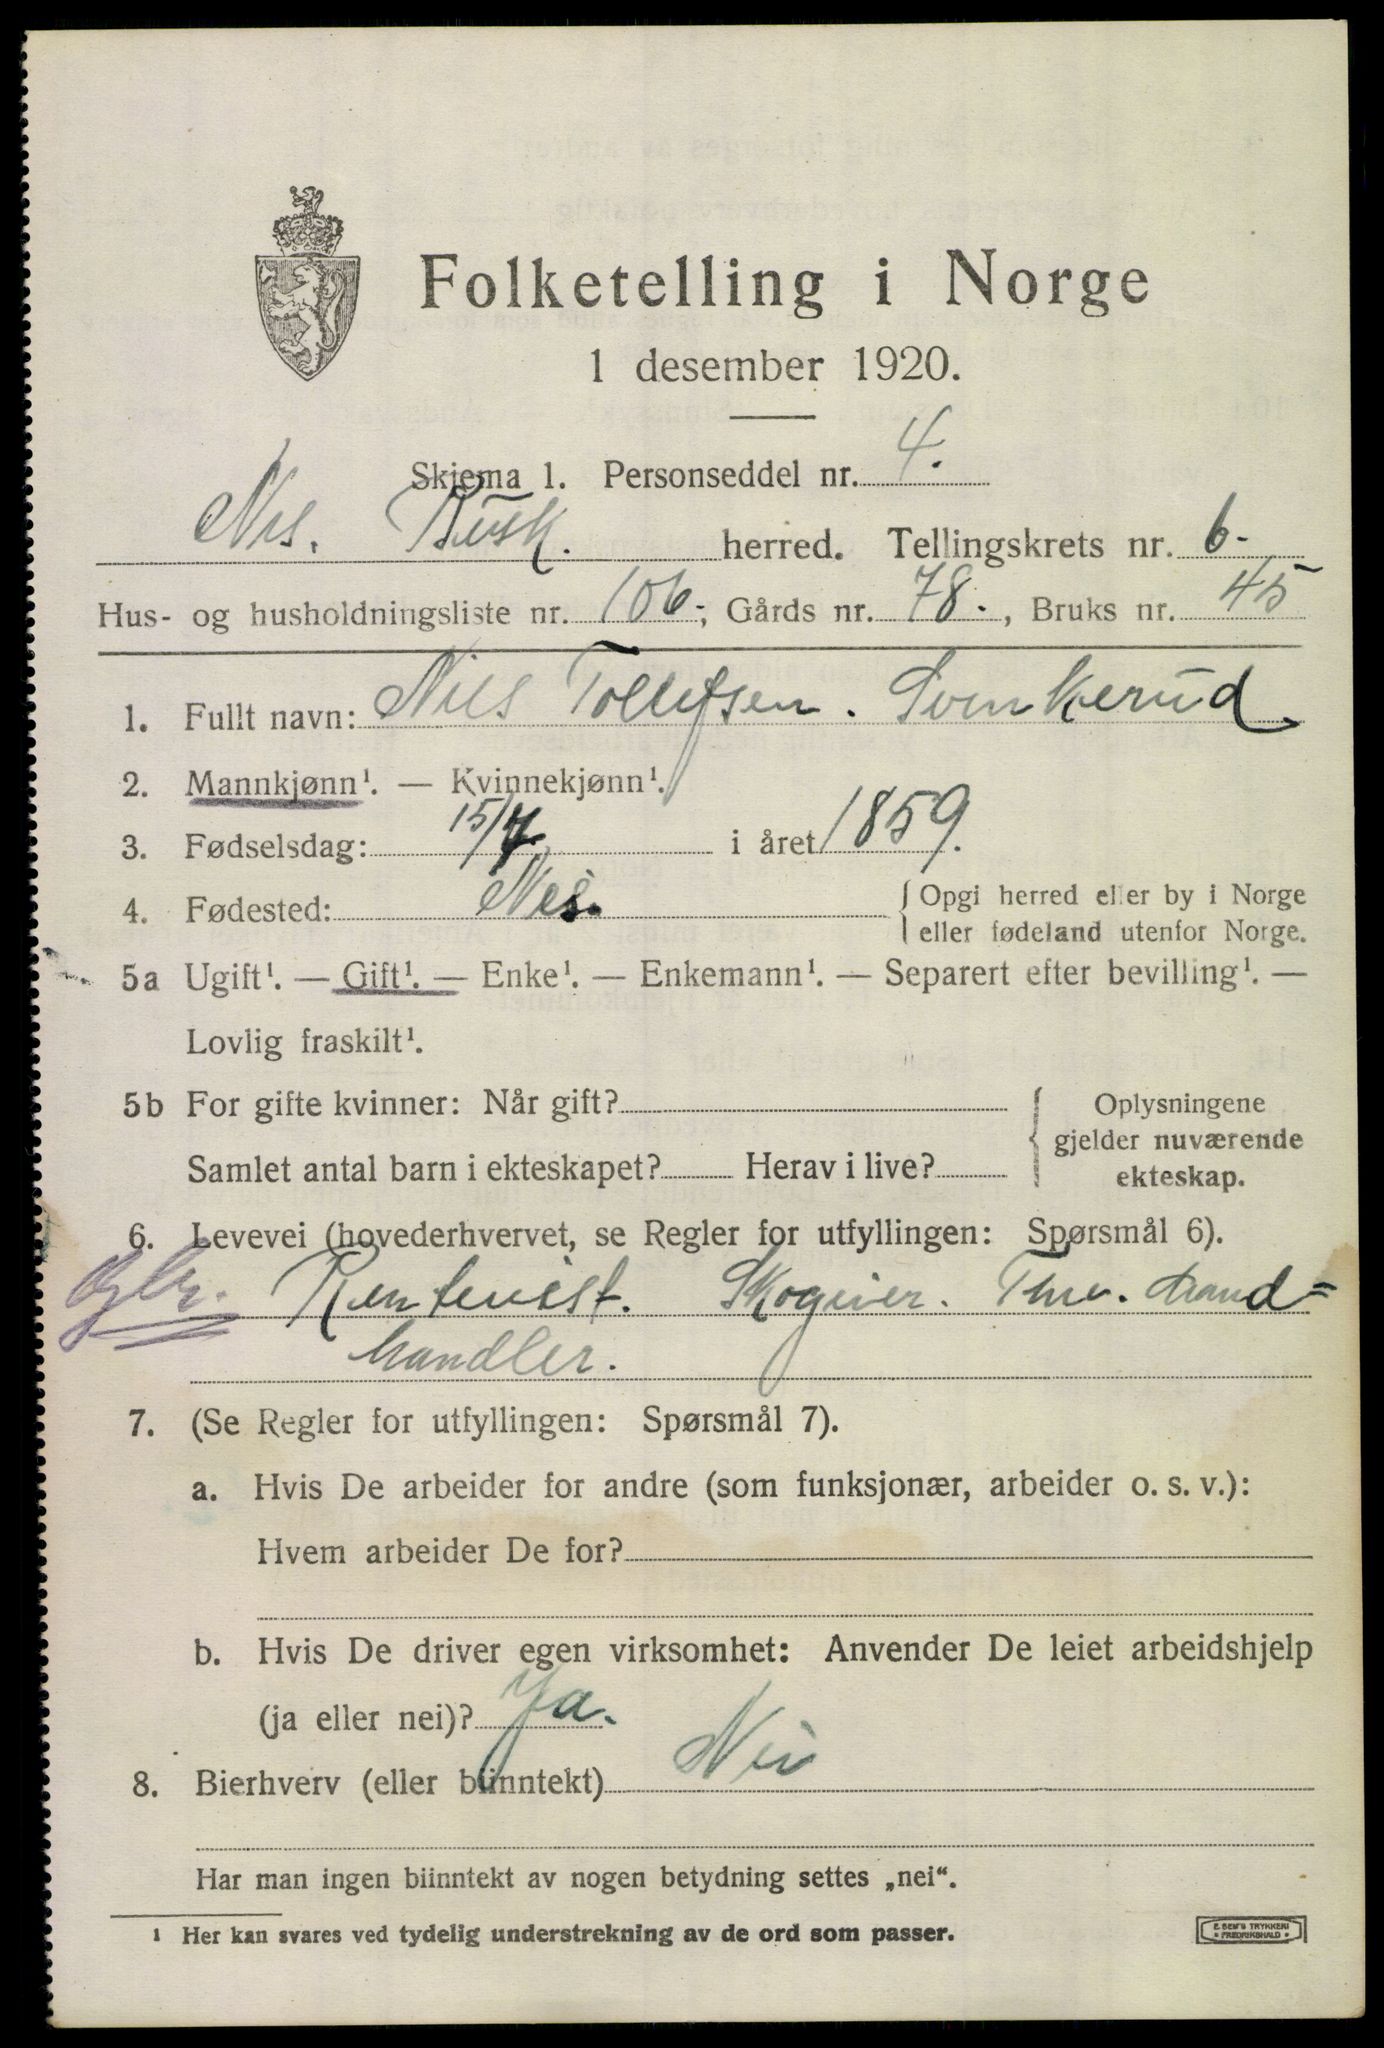 Folketelling i Norge
1 desember 1920.
Skjema 1. Personseddel nr. 4.
Nes. Busk. herred. Tellingskrets nr. 6.
Hus- og husholdningsliste nr. 106; Gårds nr. 78., Bruks nr. 45
1. Fullt navn: Nils Tollefsen. Svenkerud
2. Mannkjønn¹. — Kvinnekjønn¹.
3. Fødselsdag: 15/7 i året 1859.
4. Fødested: Nes. { Opgi herred eller by i Norge
eller fødeland utenfor Norge.
5a Ugift¹. — Gift¹. — Enke¹. — Enkemann¹. — Separert efter bevilling¹. —
Lovlig fraskilt¹.
5b For gifte kvinner: Når gift? { Oplysningene
gjelder nuværende
Samlet antal barn i ekteskapet? Herav i live? ekteskap.
6. Levevei (hovederhvervet, se Regler for utfyllingen: Spørsmål 6).
Rentenist. Skogeier. Træland=
handler.
7. (Se Regler for utfyllingen: Spørsmål 7).
a. Hvis De arbeider for andre (som funksjonær, arbeider o. s. v.):
Hvem arbeider De for?
b. Hvis De driver egen virksomhet: Anvender De leiet arbeidshjelp
(ja eller nei)? Ja.
8. Bierhverv (eller biinntekt) Nei
Har man ingen biinntekt av nogen betydning settes „nei“.
¹ Her kan svares ved tydelig understrekning av de ord som passer.
E. SEM'S TRYKKERI
FREDRIKSHALD